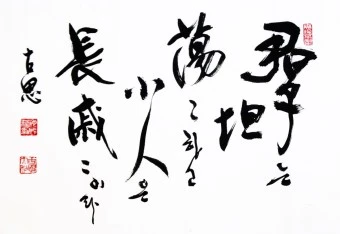 君子는
坦
蕩〻하고
小人은
長戚〻이라